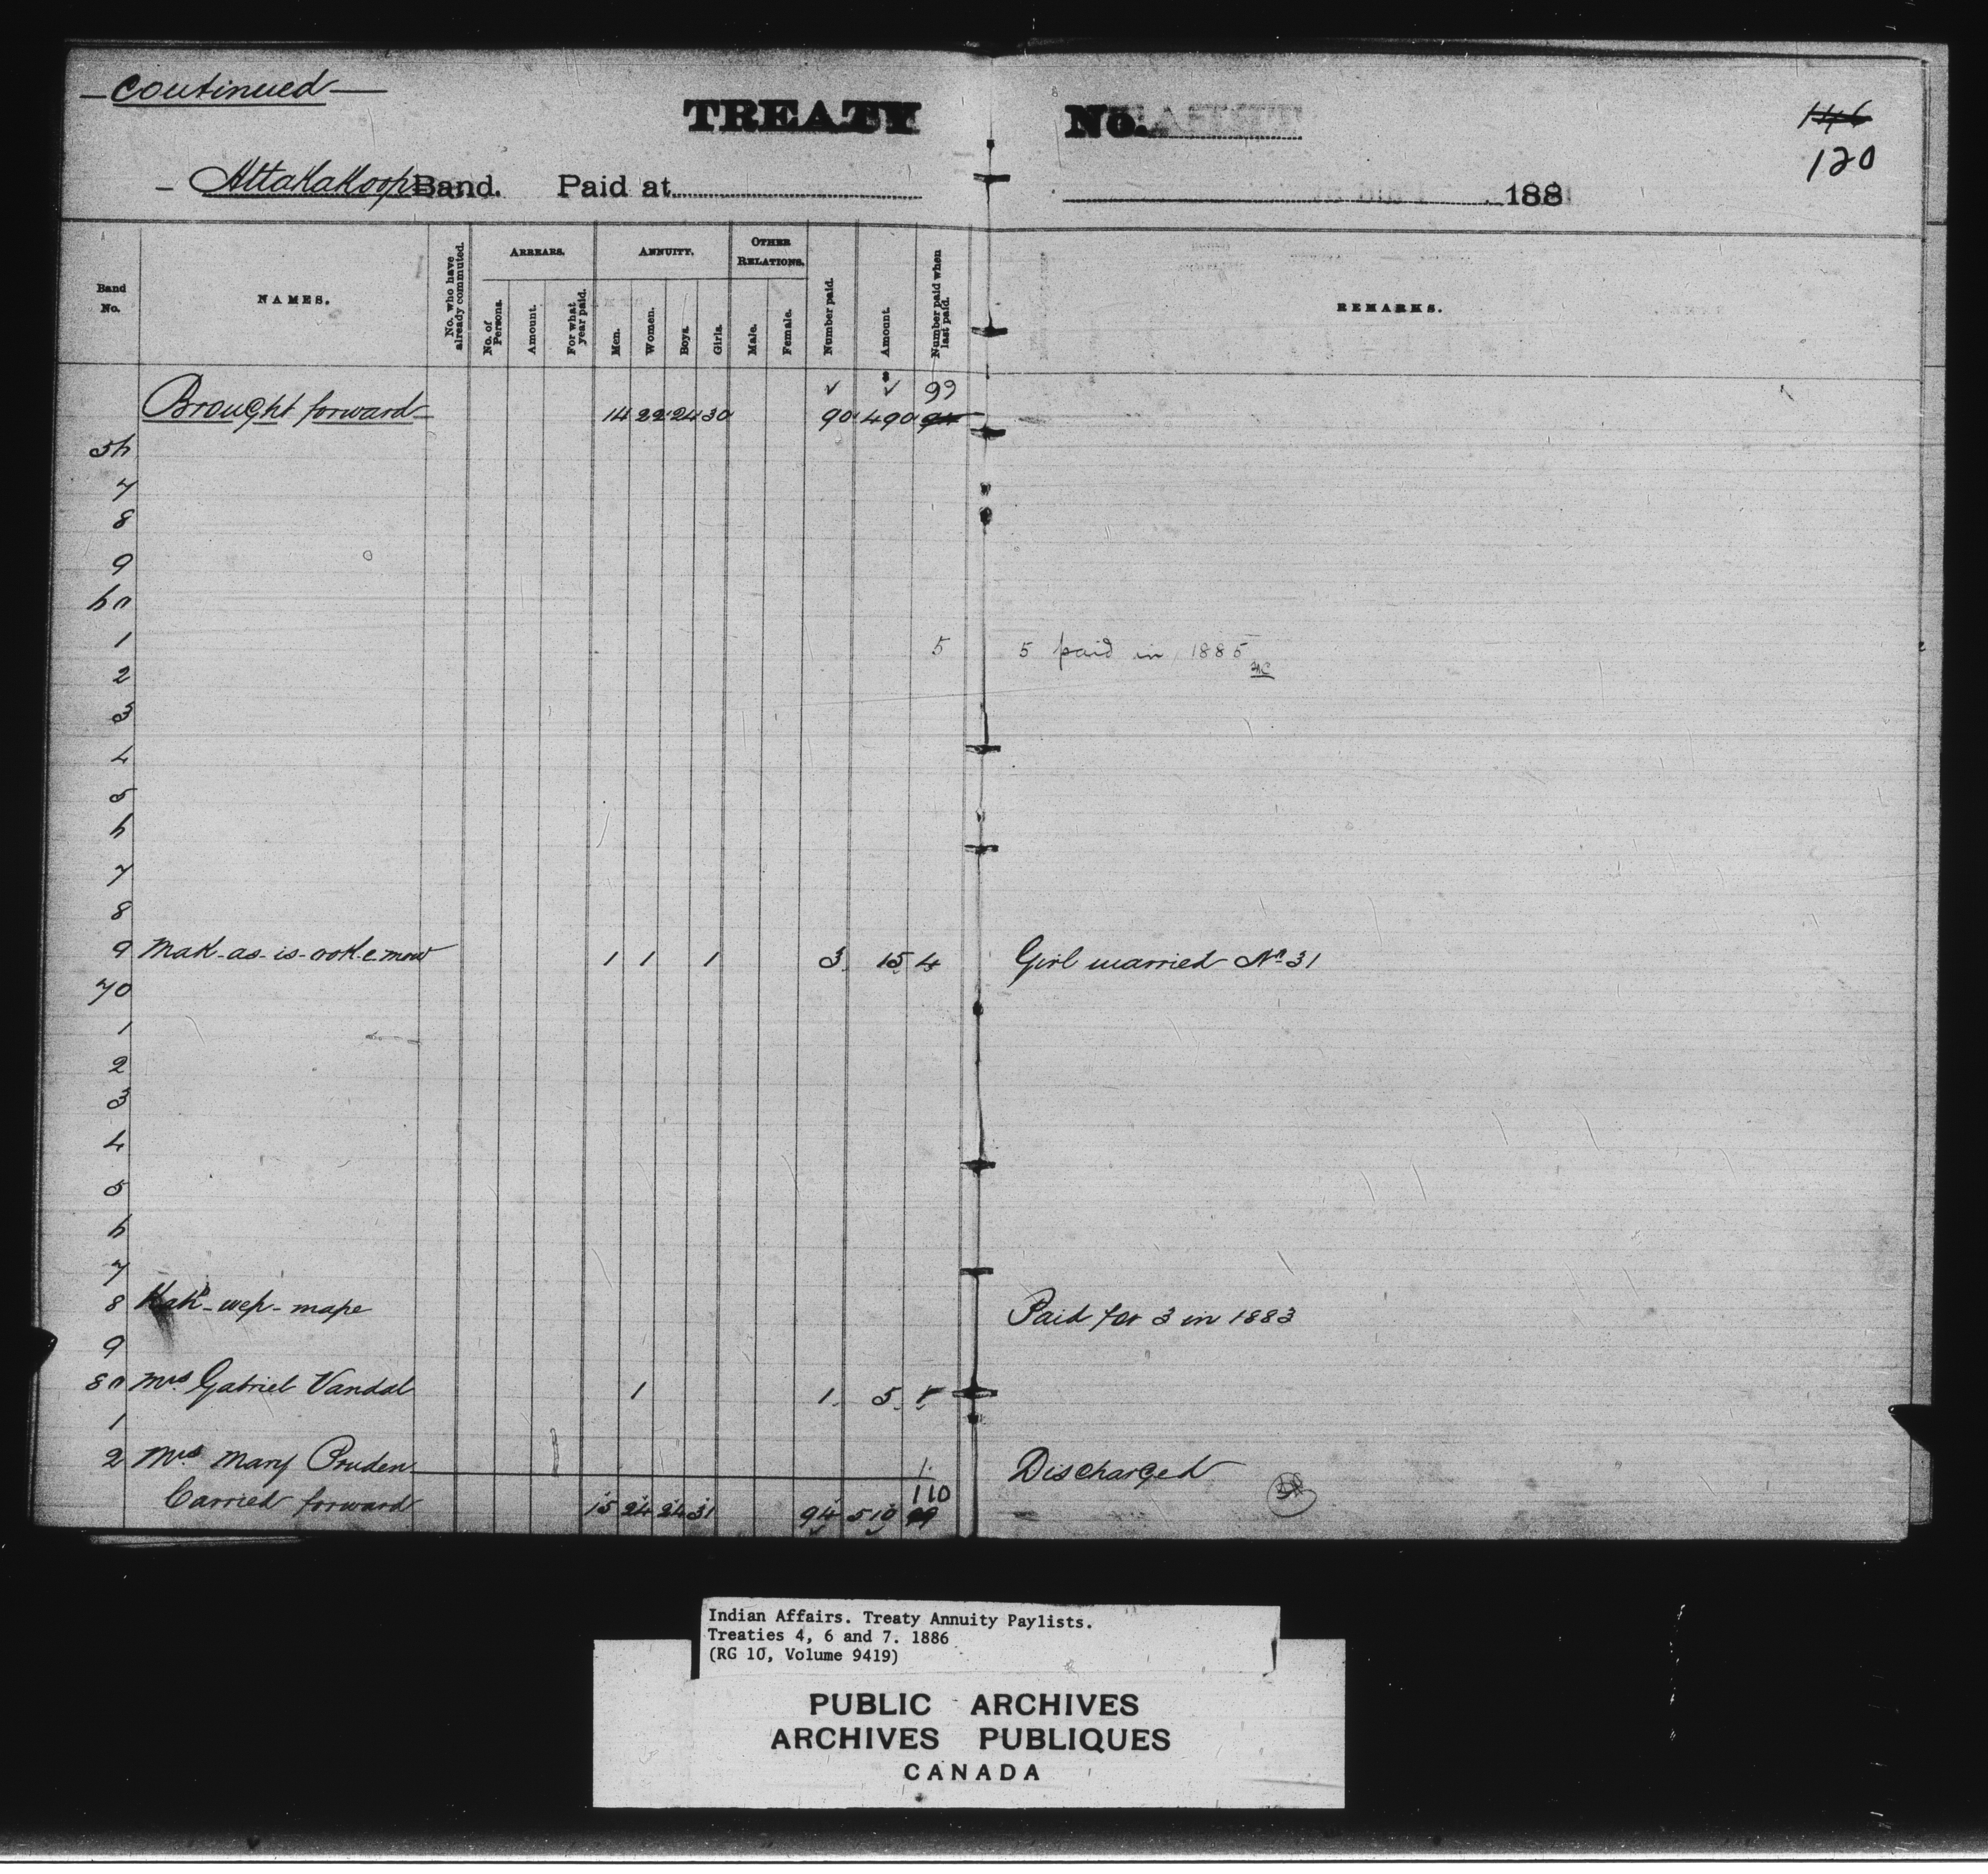 continued
TREATY No.
146
120
Attakakoops Band. Paid at 188
Band No. NAMES. No. who have already commuted. ARREARS. No. of Persons. Amount. For what year paid. ANNUITY. Men. Women. Boys. Girls. OTHER RELATIONS. Male. Female. Number paid. Amount. Number paid when last paid. REMARKS.
99
Brought forward 14 22 24 30 90 490 94
56
7
8
9
60
1 5 5 paid in 1885
2
3
4
5
6
7
8
9 Mak-as-is-ook-e-mow 1 1 1 3 15 4 Girl married No 31
70
1
2
3
4
5
6
7
8 Kah-wep-mape Paid for 3 in 1883
9
80 Mrs. Gabriel Vandal 1 1 5 1
1
2 Mrs. Mary Pruden 1 Discharged
110
Carried forward 15 24 24 31 94 510 99
Indian Affairs. Treaty Annuity Paylists.
Treaties 4, 6 and 7. 1886
(RG 10, Volume 9419)
PUBLIC ARCHIVES
ARCHIVES PUBLIQUES
CANADA